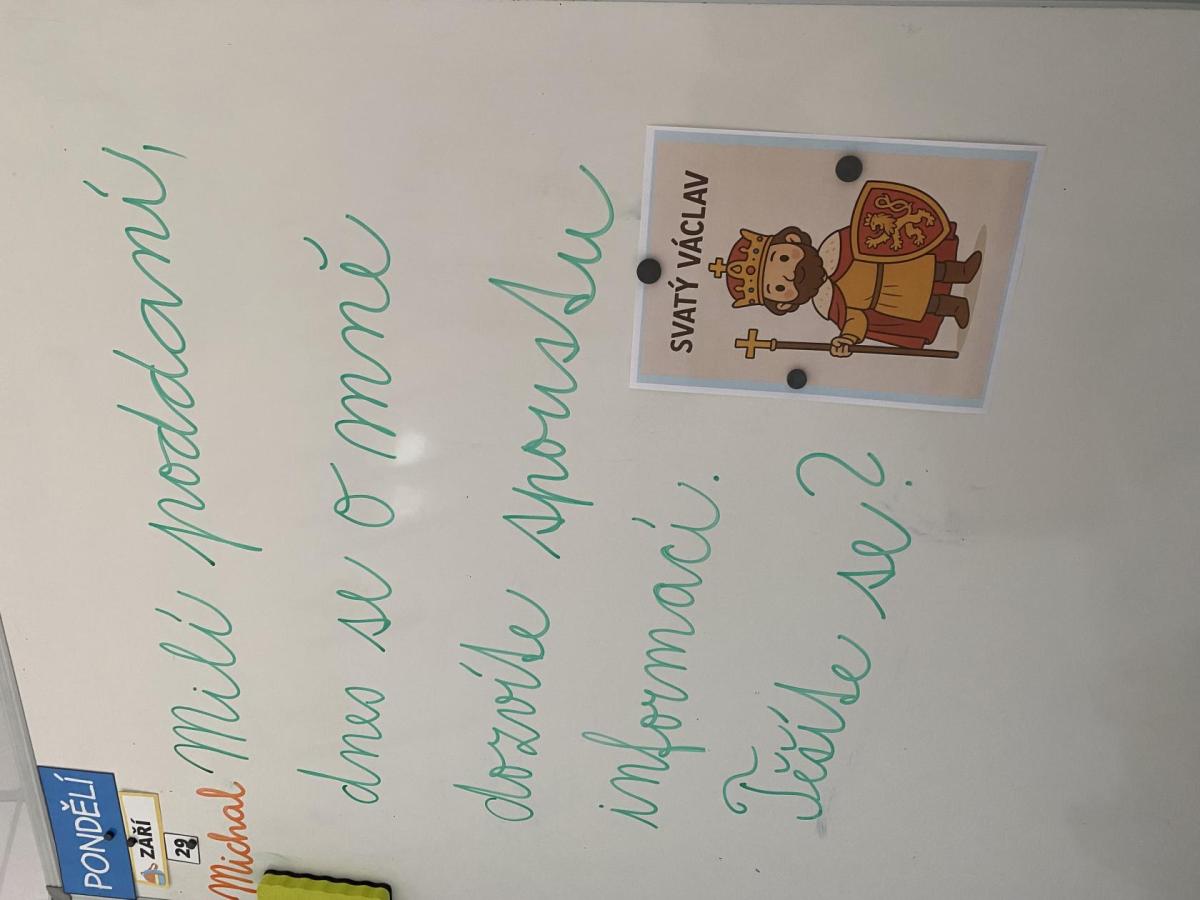 PONDĚLÍ
ZÁŘÍ
29
Michal
Milí poddaní,
dnes se o mně
dozvíte spoustu
informací.
Těšíte se?
SVATÝ VÁCLAV